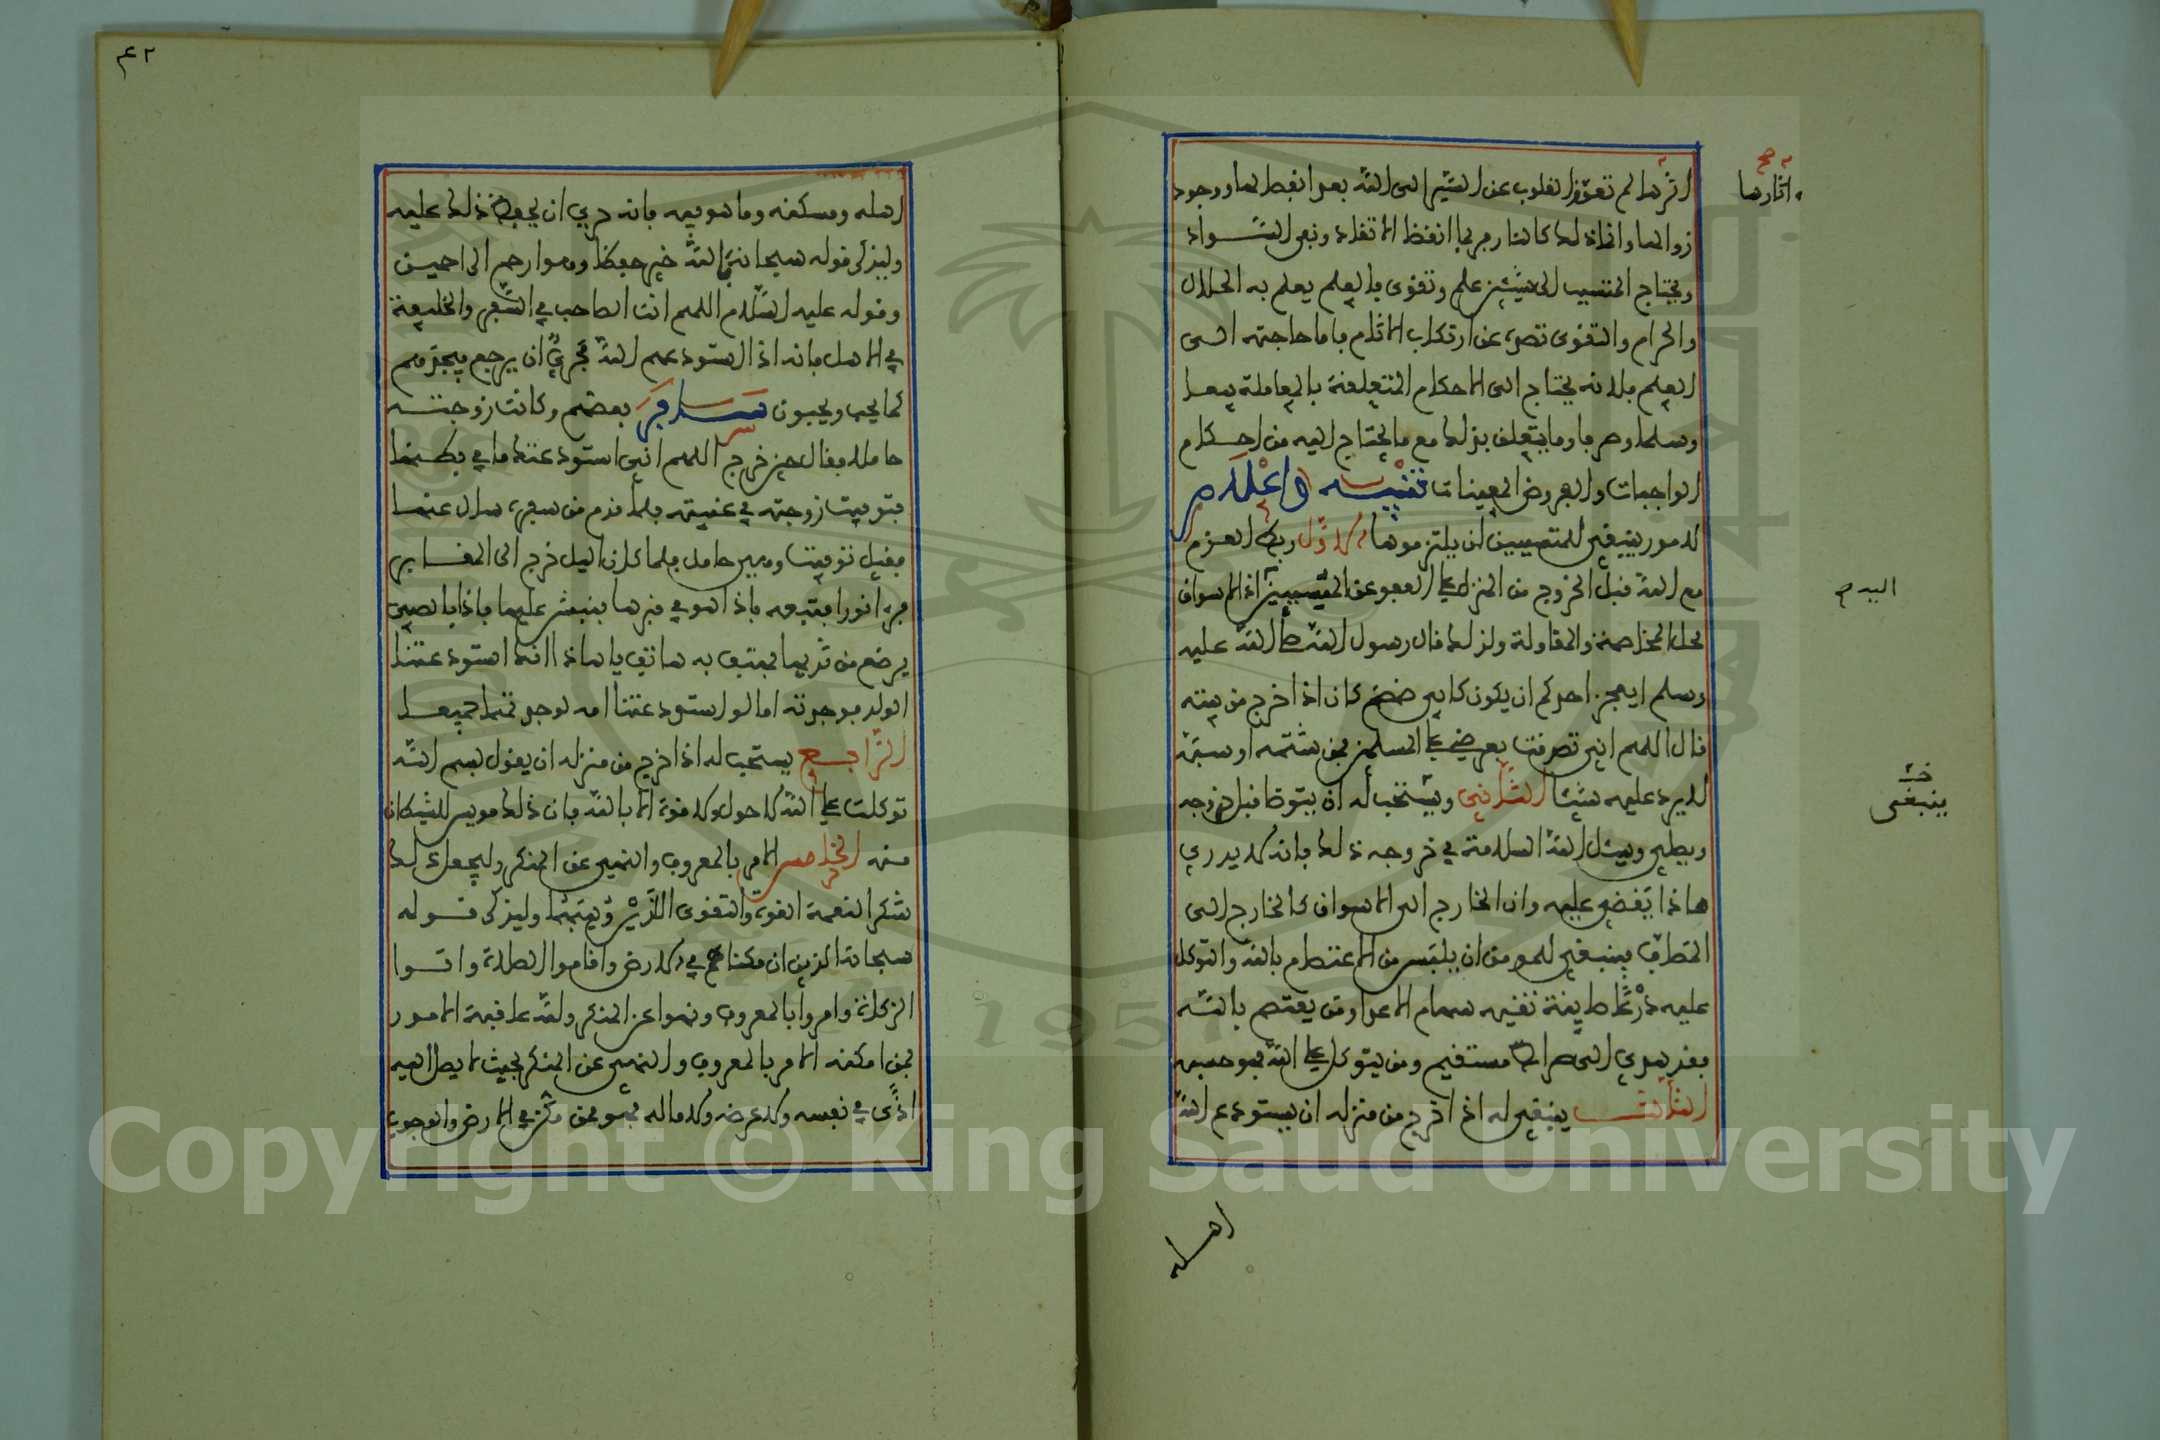 اثرها لم تعوق القلوب عن السير الى الله بعد انفصالها ووجود
زوالها وان ذلك كالنار ربما انفصل الاتقاد وبقي السواد
ويحتاج المتسبب الى شيئين علم وتقوى فالعلم يعلم به الحلال
والحرام والتقوى تصده عن ارتكاب الاثام فاما حاجته الى
العلم فلانه يحتاج الى الاحكام المتعلقة بالمعاملة بيعا
وسلما وصرفا وما يتعلق بذلك مع ما يحتاج اليه من احكام
الواجبات والفروض المعينات تنبيه واعلم
لامور ينبغي للمتسببين ان يلتزموها الاول ربط العزم
مع الله قبل الخروج من المنزل على العفو عن المسيئين اذ الاسواق
محل المخاصمة والمقاولة ولذلك قال رسول الله صلى الله عليه
وسلم ايعجز احدكم ان يكون كابي ضمضم كان اذا خرج من بيته
قال اللهم اني تصدقت بعرضي على المسلمين فمن شتمه او سبه
لا يرد عليه شيئا الثاني ويستحب له ان يتوضا قبل خروجه
ويصلي ويسئل الله السلامة في خروجه ذلك فانه لا يدري
هاذا يقضى عليه وان الخارج الى الاسواق كالخارج الى
المصاف فينبغي للمومن ان يلبس من الاعتصام بالله والتوكل
عليه درعا طايفة تقيه سهام الاعدا ومن يعتصم بالله
فقد هدي الى صراط مستقيم ومن يتوكل على الله فهو حسبه
الثالث ينبغي له اذا خرج من منزله ان يستودع الله
اثارها
صح
ينبغي
اهله
٤٢
اهله ومسكنه وما هو فيه فانه حري ان يحفظ ذلك عليه
وليذكر قوله سبحانه فالله خير حفظا وهو ارحم الراحمين
وقوله عليه السلام اللهم انت الصاحب في السفر والخليفة
في الاهل فانه اذا استودعهم الله فحري ان يرجع فيجدهم
كما يحب ويحبون سافر بعضهم وكانت زوجته
حاملا فقال حين خرج اللهم اني استودعتك ما في بطنها
فتوفيت زوجته في غيبته فلما قدم من سفره سال عنها
فقيل توفيت وهي حامل فلما كان الليل خرج الى المقابر
فرءا نورا فتبعه فاذا هو في قبرها فنبش عليها فاذا بالصبي
يرضع من ثديها فهتف به هاتف ياهاذا انك استودعتنا
الولد فوجدته اما لو استودعتنا امه لوجدتهما جميعا
الرابع يستحب له اذا خرج من منزله ان يقول بسم الله
توكلت على الله لا حول ولا قوة الا بالله فان ذلك مويس للشيطان
منه الخامس الامر بالمعروف والنهي عن المنكر وليجعل ذلك
شكرا لنعمة القوة والتقوى الذين وهبهما وليذكر قوله
سبحانه الذين ان مكناهم في الارض واقاموا الصلاة واتوا
الزكاة وامروا بالمعروف ونهوا عن المنكر ولله عاقبة الامور
فمن امكنه الامر بالمعروف والنهي عن المنكر بحيث لا يصل اليه
اذى في نفسه ولا عرضه ولا ماله فهو ممن مكن في الارض والوجوب
Copyright © King Saud University
1957